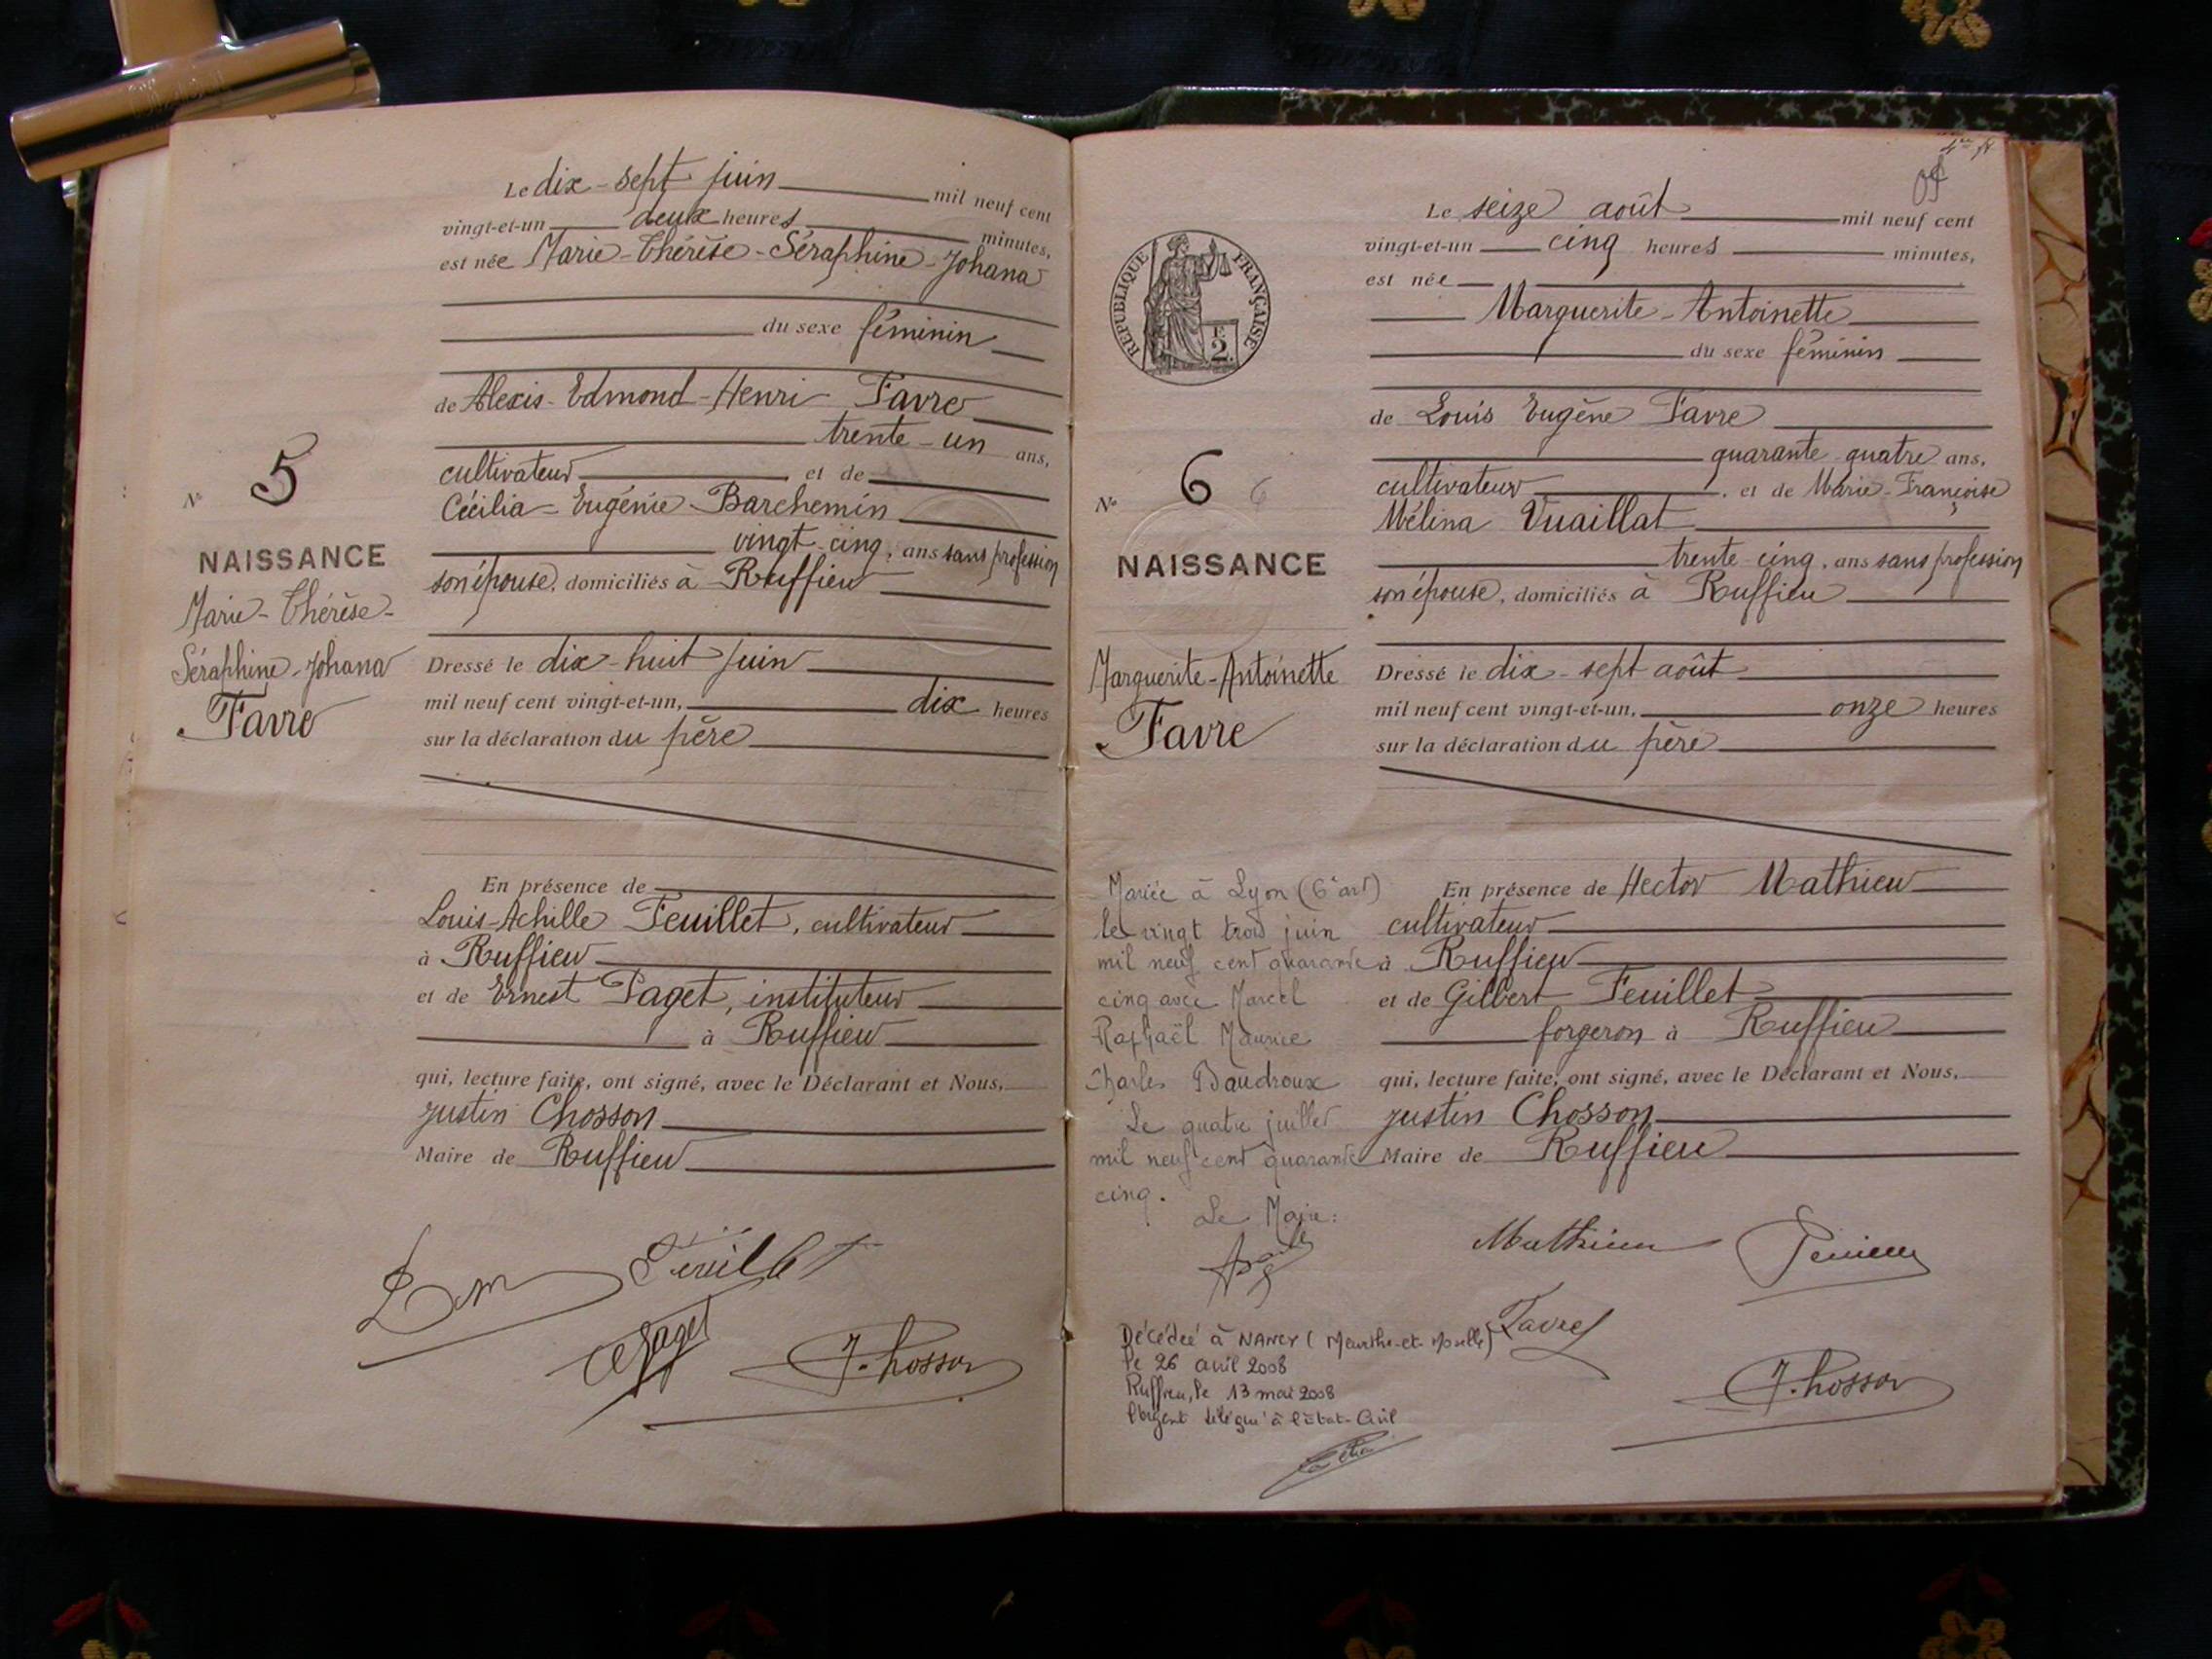 Le dix-sept juin mil neuf cent
vingt-et-un deux heures minutes,
est née Marie-Thérèse-Séraphine-Johana
du sexe féminin
de Alexis-Edmond-Henri Favre
trente-un ans,
cultivateur et de
Cécilia-Eugénie Barchemin
vingt-cinq, ans sans profession
son épouse, domiciliés à Ruffieu
N° 5
NAISSANCE
Marie-Thérèse-
Séraphine-Johana
Favre
Dressé le dix-huit juin
mil neuf cent vingt-et-un, dix heures
sur la déclaration du père
En présence de
Louis-Achille Feuillet, cultivateur
à Ruffieu
et de Ernest Paget, instituteur
à Ruffieu
qui, lecture faite, ont signé, avec le Déclarant et Nous,
Justin Chosson
Maire de Ruffieu
Feuillet
Paget
J. Chosson
REPUBLIQUE FRANÇAISE
2
Le seize août mil neuf cent
vingt-et-un cinq heures minutes,
est née
Marguerite-Antoinette
du sexe féminin
de Louis Eugène Favre
quarante-quatre ans,
cultivateur, et de Marie-Françoise
Mélina Vuaillat
trente-cinq, ans sans profession
son épouse, domiciliés à Ruffieu
N° 6 6
NAISSANCE
Marguerite-Antoinette
Favre
Dressé le dix-sept août
mil neuf cent vingt-et-un, onze heures
sur la déclaration du père
En présence de Hector Mathieu
cultivateur
à Ruffieu
et de Gilbert Feuillet
forgeron à Ruffieu
qui, lecture faite, ont signé, avec le Déclarant et Nous,
Justin Chosson
Maire de Ruffieu
Mariée à Lyon (6e arrt)
le vingt trois juin
mil neuf cent quarante
cinq avec Marcel
Raphaël Maurice
Charles Baudroux
Le quatre juillet
mil neuf cent quarante
cinq.
Le Maire:
Mathieu
Favre
J. Chosson
Décédée à NANCY (Meurthe-et-Moselle)
le 26 avril 2008
Ruffieu, le 13 mai 2008
l'agent délégué à l'état-Civil